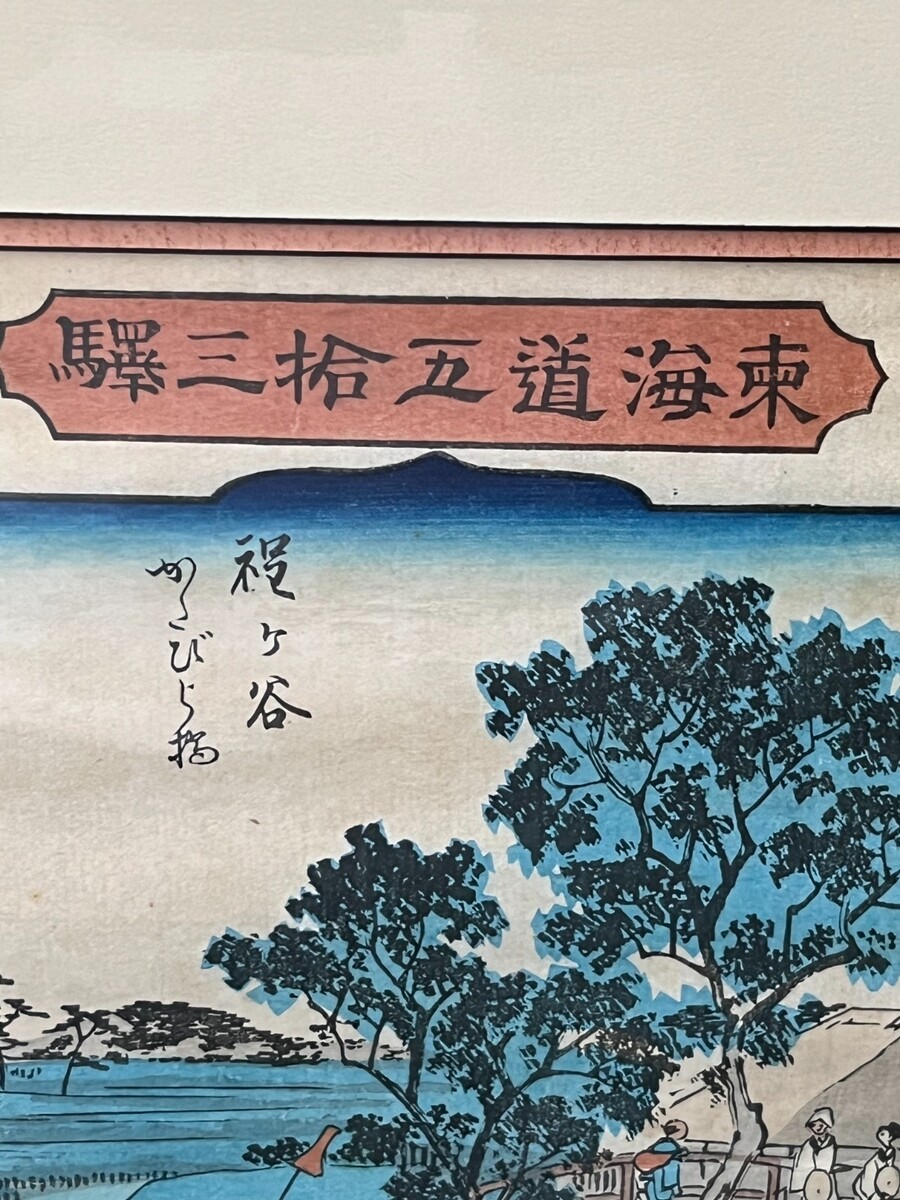 東海道五拾三驛
程ヶ谷
かたびら橋